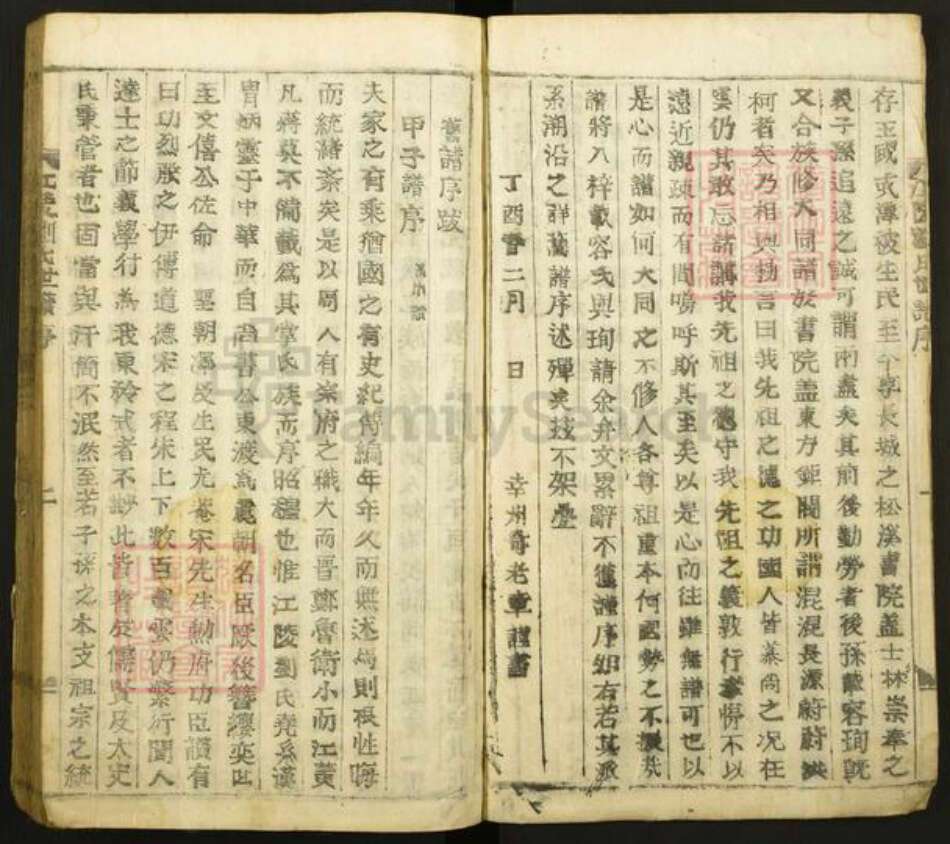 存王國或澤被生民至今享長城之松溪書院蓋士林崇奉之
義子孫追遠之誠可謂兩盡矣其前後勤勞者後孫載容珣旣
又合族修大同譜於書院蓋東方鉅閥所謂混混長源蔚蔚洪
柯者矣乃相與揚言曰我先祖之德之功國人皆慕尚之况在
雲仍其敢忘諸講我先祖之德守我先祖之義敦行孝悌不以
遠近親疎而有間嗚呼斯其至矣以是心而往雖無譜可也以
是心而譜如何大同之不修人各尊祖重本何
譜將入梓載容氏與珣請余弁文累辭不獲謹序如右若其派
系溯沿之詳舊譜序述殫矣玆不架疊
丁酉春二月 日 幸州奇老章謹書
舊譜序跋
甲子譜序
夫家之有乘猶國之有史紀傳編年年久而無述焉則根性晦
而統緖紊矣是以周人有宗府之職大而晋鄭魯衛小而江黃
凡蔣莫不備載爲其掌氏族而序昭穆也惟江陵劉氏堯系漢
胄炳靈于中華而自尙書公東渡爲麗朝名臣厥後簪纓奕世
至文僖公佐命 聖朝澤及生民尤菴宋先生勳府功臣讚有
曰功烈殷之伊傅道德宋之程朱上下數百載雲仍繁衍聞人
達士之節義學行爲我東矜式者不尠此皆諸儒賢及太史
氏秉管者也固當與汗簡不泯然至若子孫之本支祖宗之統
江陵劉氏世譜序
FamilySearch